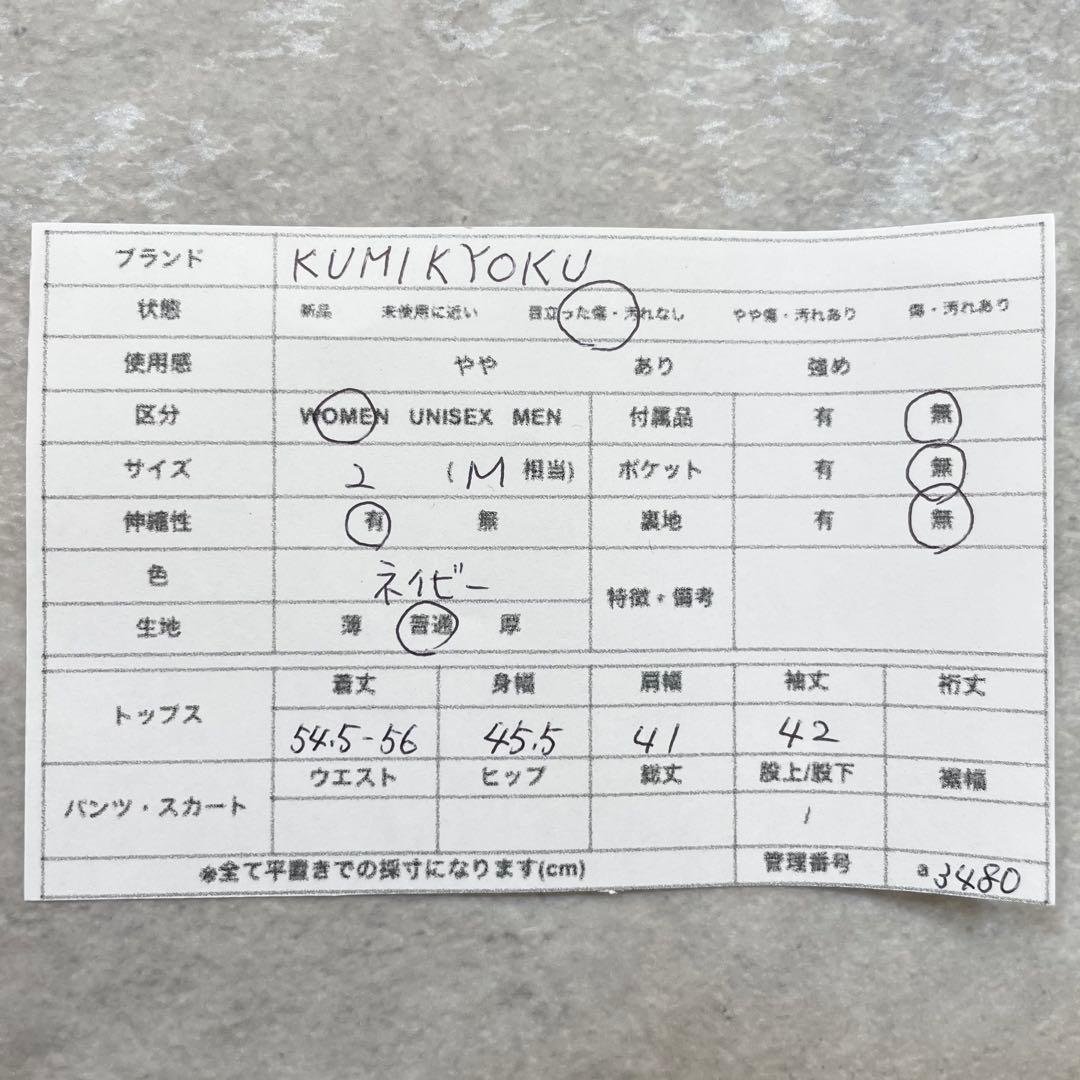 ブランド KUMIKYOKU
状態 新品 未使用に近い 目立った傷・汚れなし やや傷・汚れあり 傷・汚れあり
使用感 やや あり 強め
区分 WOMEN UNISEX MEN 付属品 有 無
サイズ 2 (M 相当) ポケット 有 無
伸縮性 有 無 裏地 有 無
色 ネイビー 特徴・備考
生地 薄 普通 厚
トップス 着丈 身幅 肩幅 袖丈 裄丈
54.5-56 45.5 41 42
パンツ・スカート ウエスト ヒップ 総丈 股上/股下 裾幅
/
※全て平置きでの採寸になります(cm) 管理番号 a3480